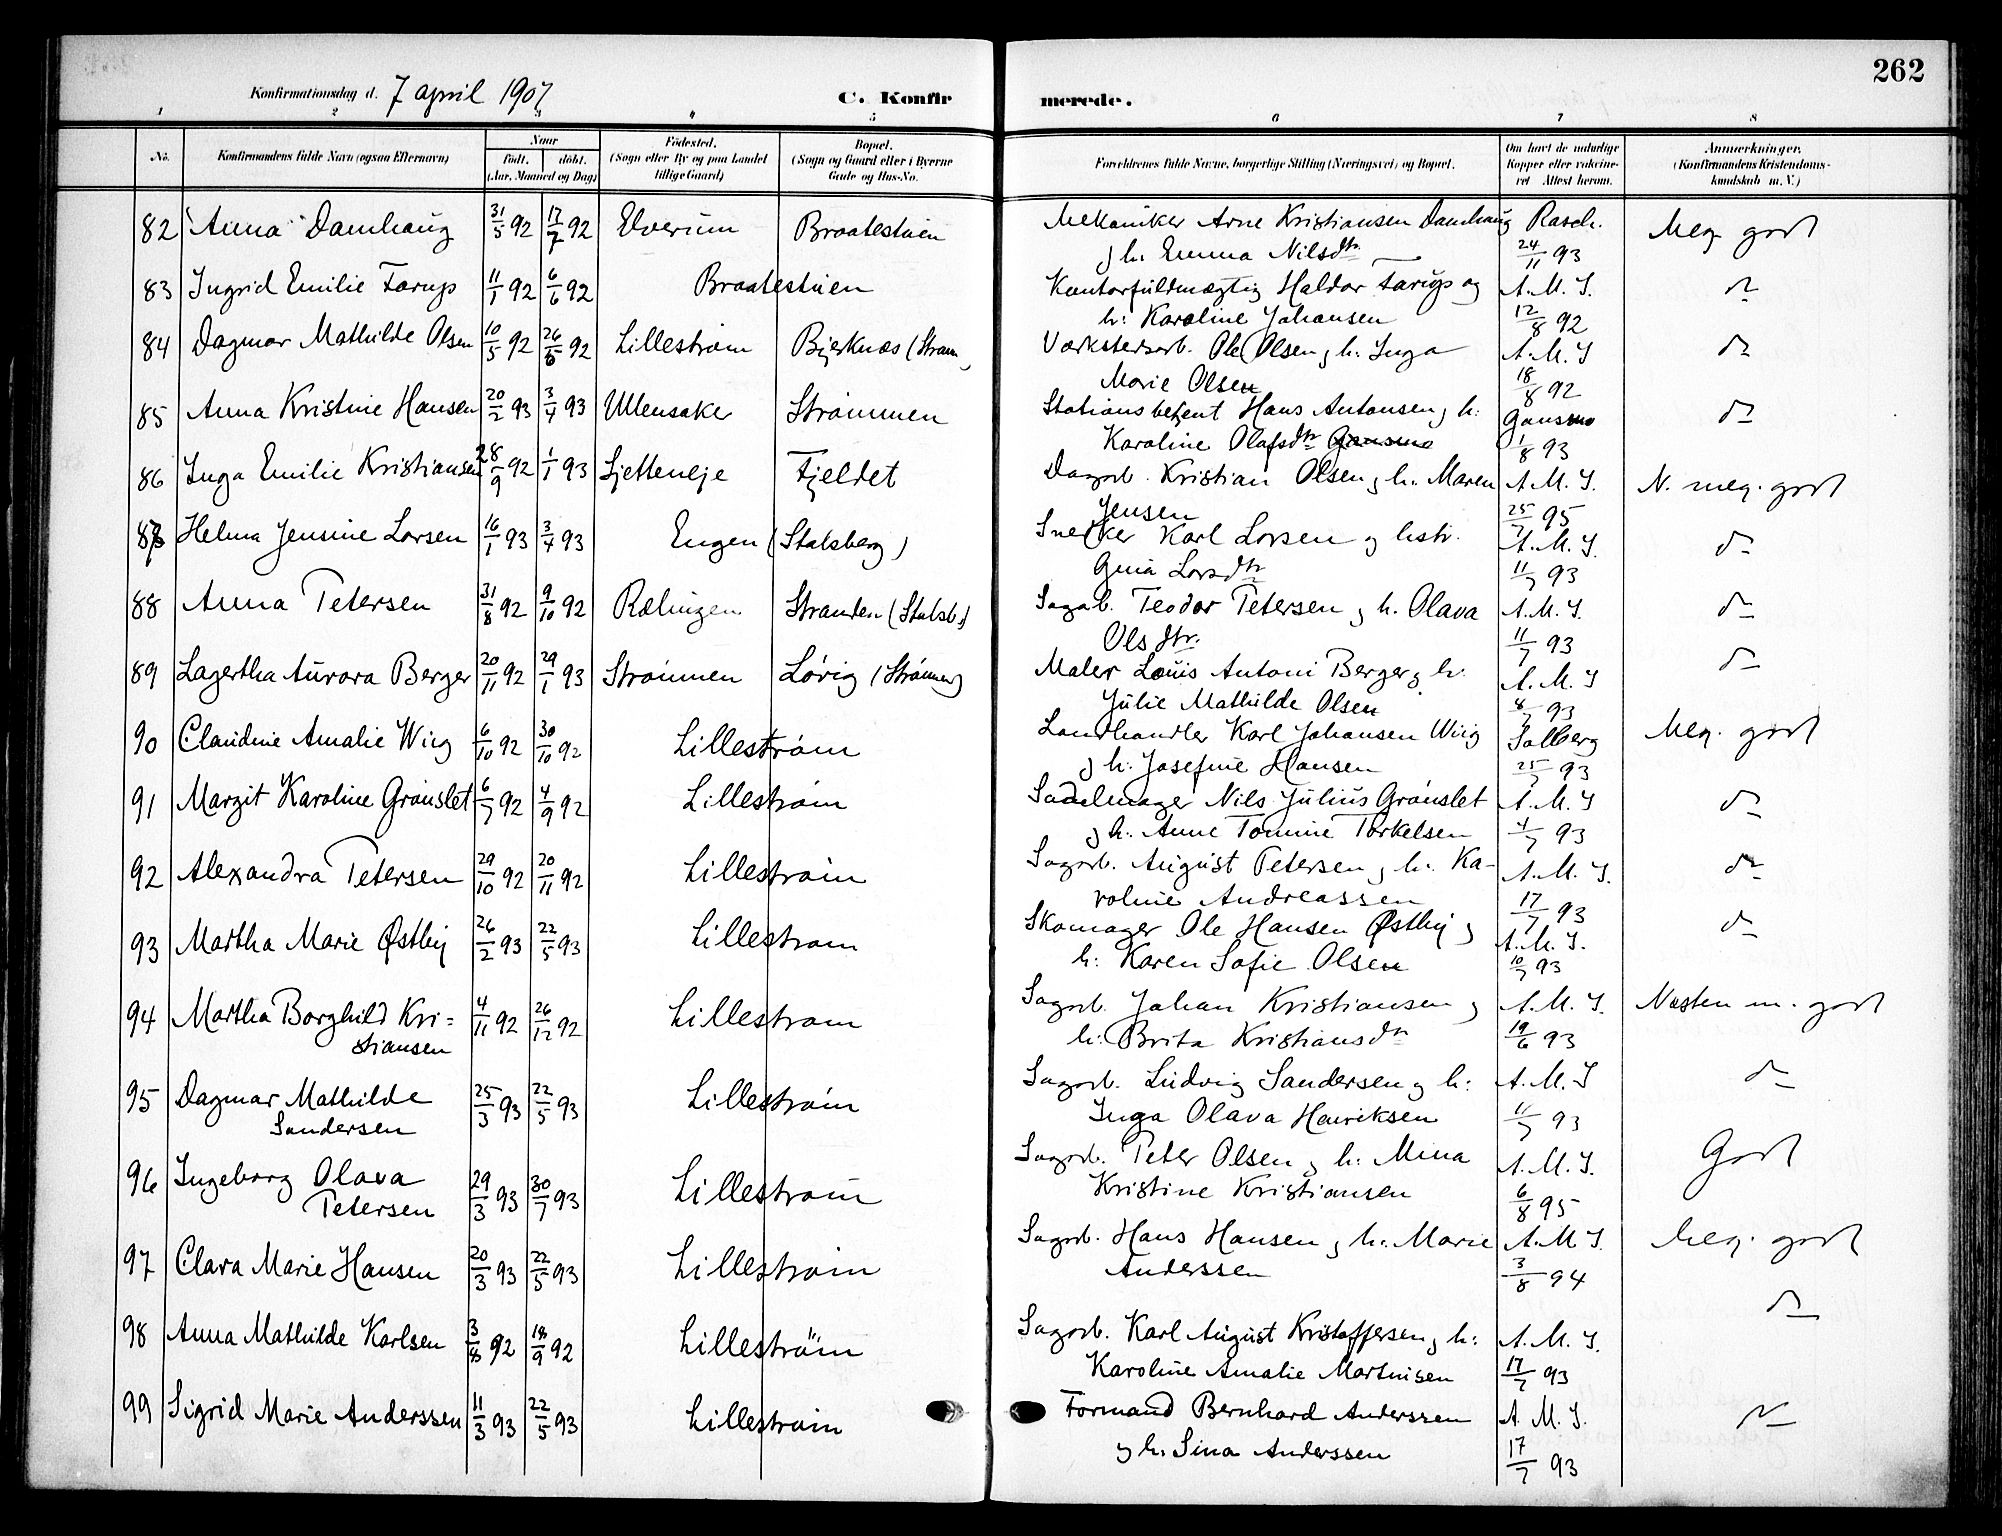 262
Konfirmationsdag d. 7 april 1907 C. Konfirmerede.
1 2 3 4 5 6 7 8
No. Konfirmandens fulde Navn (ogsaa Efternavn) Naar født. døbt. (Aar, Maaned og Dag) Fødested. (Sogn eller By og paa Landet tillige Gaard) Bopæl. (Sogn og Gaard eller i Byerne Gade og Hus-No. Forældrenes fulde Navne, borgerlige Stilling (Næringsvei) og Bopæl. Om havt de naturlige Kopper eller vaccineret Attest herom. Anmærkninger. (Konfirmandens Kristendomskundskab m. V.)
82 Anna Damhaug 31/5 92 17/7 92 Elverum Braatestuen Mekaniker Arne Kristiansen Damhaug Rasch. Meg. godt
g h. Emma Nilsdtr 24/11 93
83 Ingrid Emilie Farup 11/1 92 6/6 92 Braatestuen Kontorfuldmægtig Haldor Farup og A. M. S. do
h: Karoline Johansen 12/8 92
84 Dagmar Mathilde Olsen 10/5 92 26/5 92 Lillestrøm Bjerknæs (Strøm Værkstedsarb. Ole Olsen g h. Inga A. M. S do
Marie Olsen 18/8 92
85 Anna Kristine Hansen 20/2 93 3/4 93 Ullensaker Strømmen Stationsbetjent Hans Antonsen g h: Gansmo do
Karoline Olafsdtr Gansmo 1/8 93
86 Inga Emilie Kristiansen 28/9 92 1/1 93 Sjetteneje Fjeldet Dagarb. Kristian Olsen g h. Maren A. M. S. N. meg. godt
Jensen 25/7 95
87 Helma Jensine Larsen 16/1 93 3/4 93 Engen (Stalsberg) Snedker Karl Larsen g hstr. A. M. S. do
Gina Larsdtr 11/7 93
88 Anna Petersen 31/8 92 9/10 92 Rælingen Stranden (Stalsb.) Sagarb. Teodor Petersen g h. Olava A. M. S. do
Olsdtr. 11/7 93
89 Lagertha Aurora Berger 20/11 92 29/1 93 Strømmen Lørig (Strømmen) Maler Louis Antoni Berger g h. A. M. S do
Julie Mathilde Olsen 8/7 93
90 Claudine Amalie Wiig 6/10 92 30/10 92 Lillestrøm Landhandler Karl Johansen Wiig Solberg Meg. godt
g h. Josefine Hansen 25/7 93
91 Margit Karoline Grønslet 6/7 92 4/9 92 Lillestrøm Sadelmager Nils Julius Grønslet A. M. S do
g h. Anne Tomine Torkelsen 4/7 93
92 Alexandra Petersen 29/10 92 20/11 92 Lillestrøm Sagarb. August Petersen g h. Ka- A. M. S. do
roline Andreassen 17/7 93
93 Martha Marie Østby 26/2 93 22/5 93 Lillestrøm Skomager Ole Hansen Østby g A. M. S. do
h: Karen Sofie Olsen 10/7 93
94 Martha Borghild Kri= 4/11 92 26/12 92 Lillestrøm Sagarb. Johan Kristiansen g A. M. S. Næsten m. godt
stiansen h: Brita Kristiansdtr 19/6 93
95 Dagmar Mathilde 25/3 93 22/5 93 Lillestrøm Sagarb. Ludvig Sandersen g h: A. M. S do
Sandersen Inga Olava Henriksen 11/7 93
96 Ingeborg Olava 29/3 93 30/7 93 Lillestrøm Sagarb. Peter Olsen g h: Mina A. M. S. Godt
Petersen Kristine Kristiansen 6/8 95
97 Clara Marie Hansen 20/3 93 22/5 93 Lillestrøm Sagarb. Hans Hansen g h: Marie A. M. S. Meg. godt
Anderssen 3/8 94
98 Anna Mathilde Karlsen 3/8 92 18/9 92 Lillestrøm Sagarb. Karl August Kristoffersen g h: A. M. S. do
Karoline Amalie Martinsen 17/7 93
99 Sigrid Marie Anderssen 11/3 93 22/5 93 Lillestrøm Formand Bernhard Anderssen A. M. S. do
g h. Sina Anderssen 17/7 93